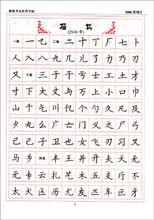 楷书
(2500字)
一 乙 二 十 丁 厂 七 卜
人 入 八 九 几 儿 了 力 乃 刀
又 三 于 干 亏 士 工 土 才
寸 下 大 丈 与 万 上 小 口 巾
山 千 乞 川 亿 个 勺 久 凡 及
夕 丸 么 广 亡 门 义 之 尸 弓
己 已 子 卫 也 女 飞 刃 习 叉
马 乡 丰 王 井 开 夫 天
无 元 专 云 扎 艺 木 五 支 厅
不 太 犬 区 历 尤 友 匹 车 巨